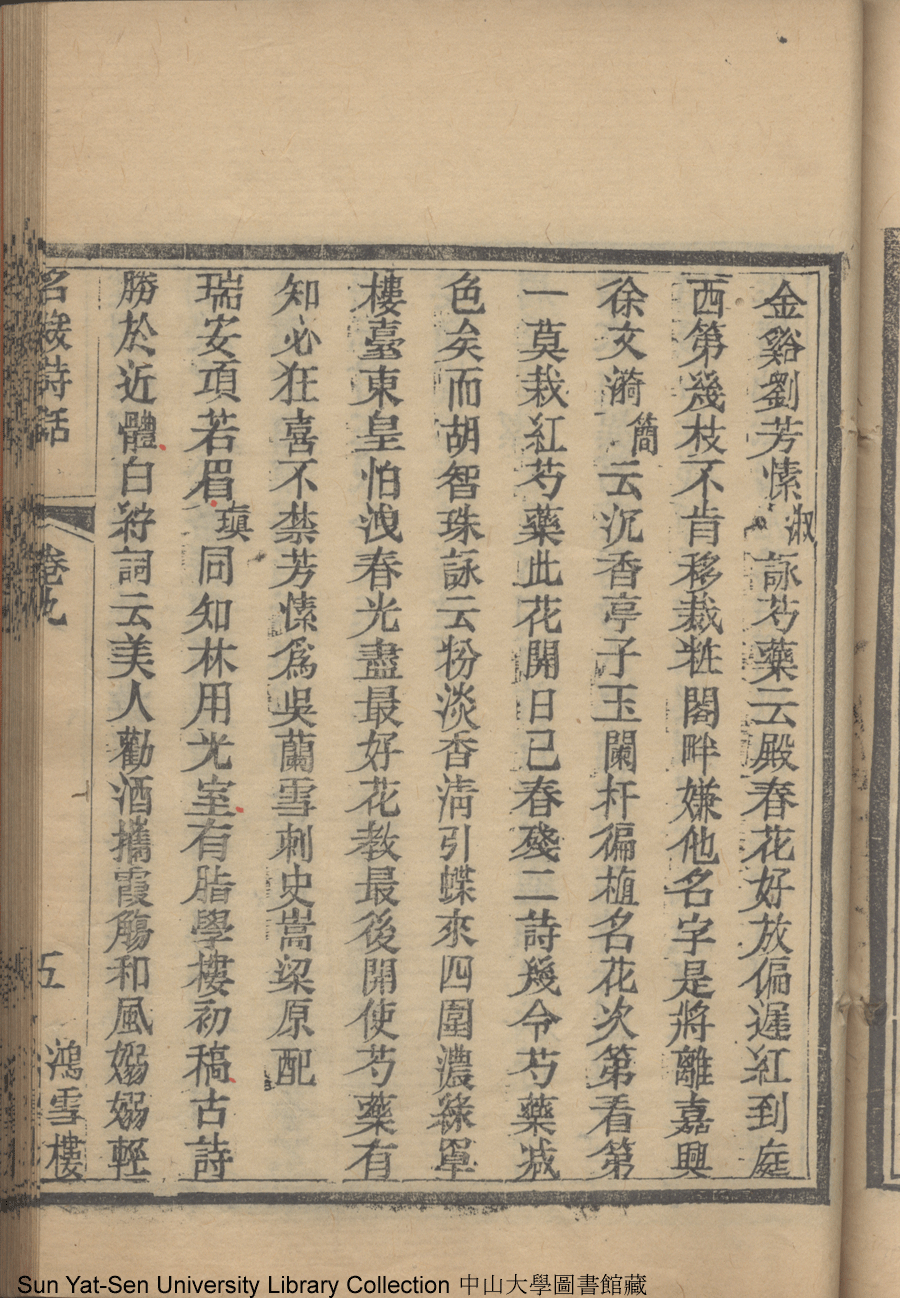 金谿劉芳愫淑詠芍藥云殿春花好放偏遲紅到庭
西第幾枝不肯移栽粧閣畔嫌他名字是將離嘉興
徐文漪簡云沉香亭子玉闌杆偏植名花次第看第
一莫栽紅芍藥此花開日已春殘二詩幾令芍藥减
色矣而胡智珠詠云粉淡香清引蝶來四圍濃綠罩
樓臺東皇怕洩春光盡最好花教最後開使芍藥有
知必狂喜不禁芳愫爲吳蘭雪刺史嵩梁原配
瑞安項若眉瑱同知林用光室有脂學樓初稿古詩
勝於近體白紵詞云美人勸酒攜霞觴和風嫋嫋輕
名媛詩話 卷九 五 鴻雪樓
Sun Yat-Sen University Library Collection 中山大學圖書館藏